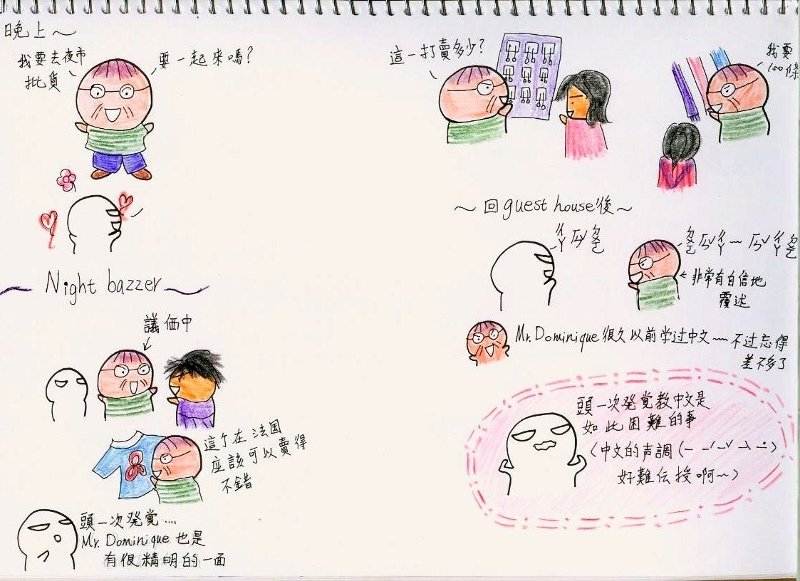 晚上～
我要去夜市
批貨
要一起來嗎?
～Night bazzer～
議価中
這个在法国
应該可以賣得
不錯
頭一次発覚....
Mr. Dominique 也是
有很精明的一面
這一打賣多少?
我要
100條
～回guest house後～
ㄔㄚ ㄍㄨ ㄆㄤ
非常有自信地
覆述
Mr. Dominique 很久以前学过中文～不过忘得
差不多了
頭一次発覚教中文是
如此困難的事
(中文的声調(－ ˊ ˇ ˋ ˙)
好難伝授啊～)